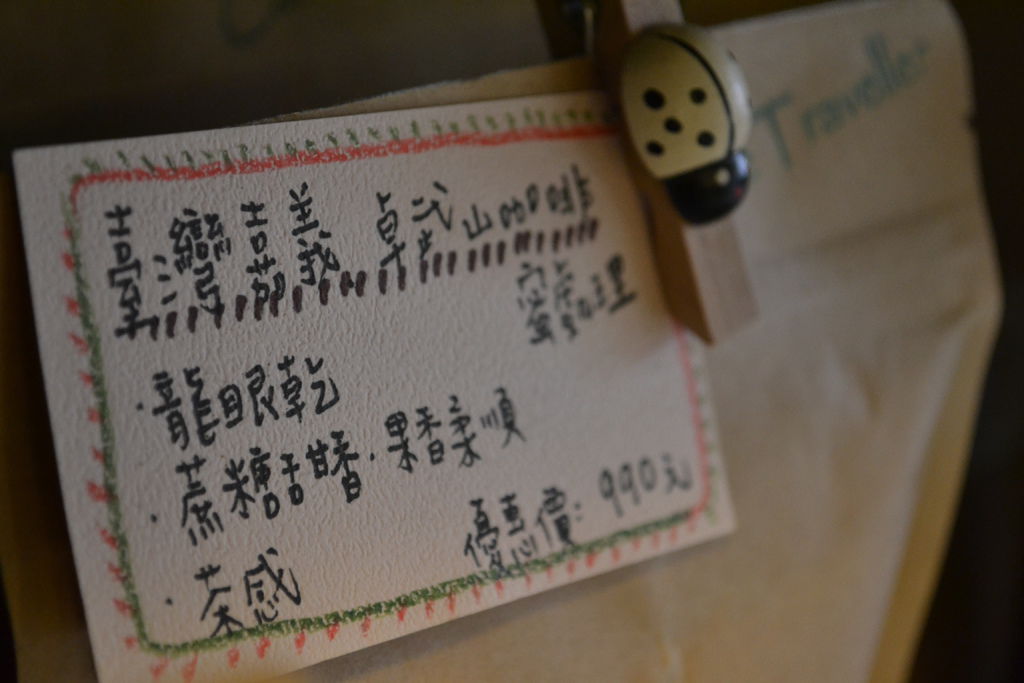 臺灣嘉義 卓武山咖啡
蜜處理
·龍眼乾
·蔗糖甜香·果香柔順
·茶感
優惠價:990元
Traveller